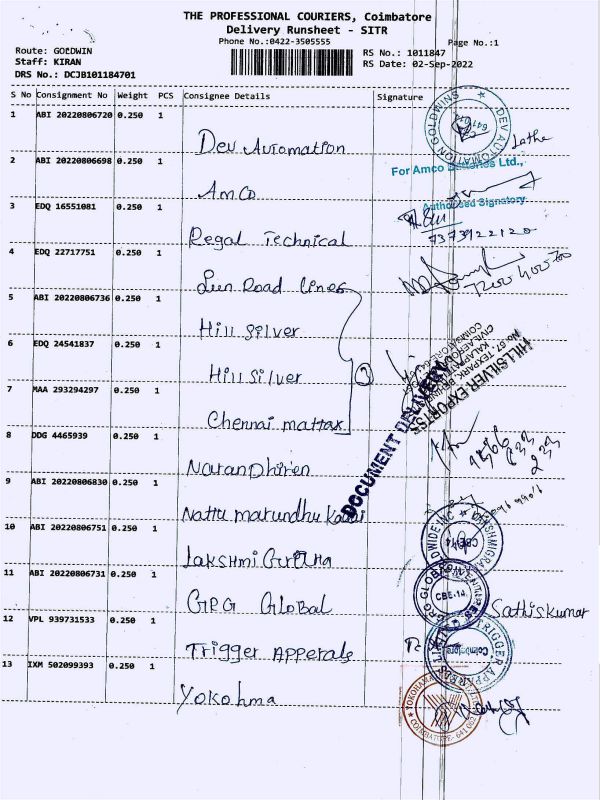 THE PROFESSIONAL COURIERS, Coimbatore
Delivery Runsheet - SITR
Phone No.:0422-3505555
Page No.:1
Route: GOLDWIN
RS No.: 1011847
Staff: KIRAN
RS Date: 02-Sep-2022
DRS No.: DCJB101184701
S No Consignment No Weight PCS Consignee Details Signature
1 ABI 20220806720 0.250 1
Dev Automation
DEV AUTOMATION GOLDWINS
2 ABI 20220806698 0.250 1
For Amco Batteries Ltd.,
AMCO
Authorised Signatory
3 EDQ 16551081 0.250 1
7373922120
Regal Technical
4 EDQ 22717751 0.250 1
Sun Road lines
5 ABI 20220806736 0.250 1
Hill silver
HILLSILVER EXPORTSS
6 EDQ 24541837 0.250 1
Hill silver
3
7 MAA 293294297 0.250 1
Chennai mattax
DOCUMENT DELIVERY
8 DDG 4465939 0.250 1
Naran Dhiren
9 ABI 20220806830 0.250 1
Nattu marundhu Kadai
10 ABI 20220806751 0.250 1
CBE-14
11 ABI 20220806731 0.250 1
CBE-14.
GRG Global
Sathiskumar
12 VPL 939731533 0.250 1
Trigger Apperals
Coimbatore
13 IXM 502099393 0.250 1
Yokohma